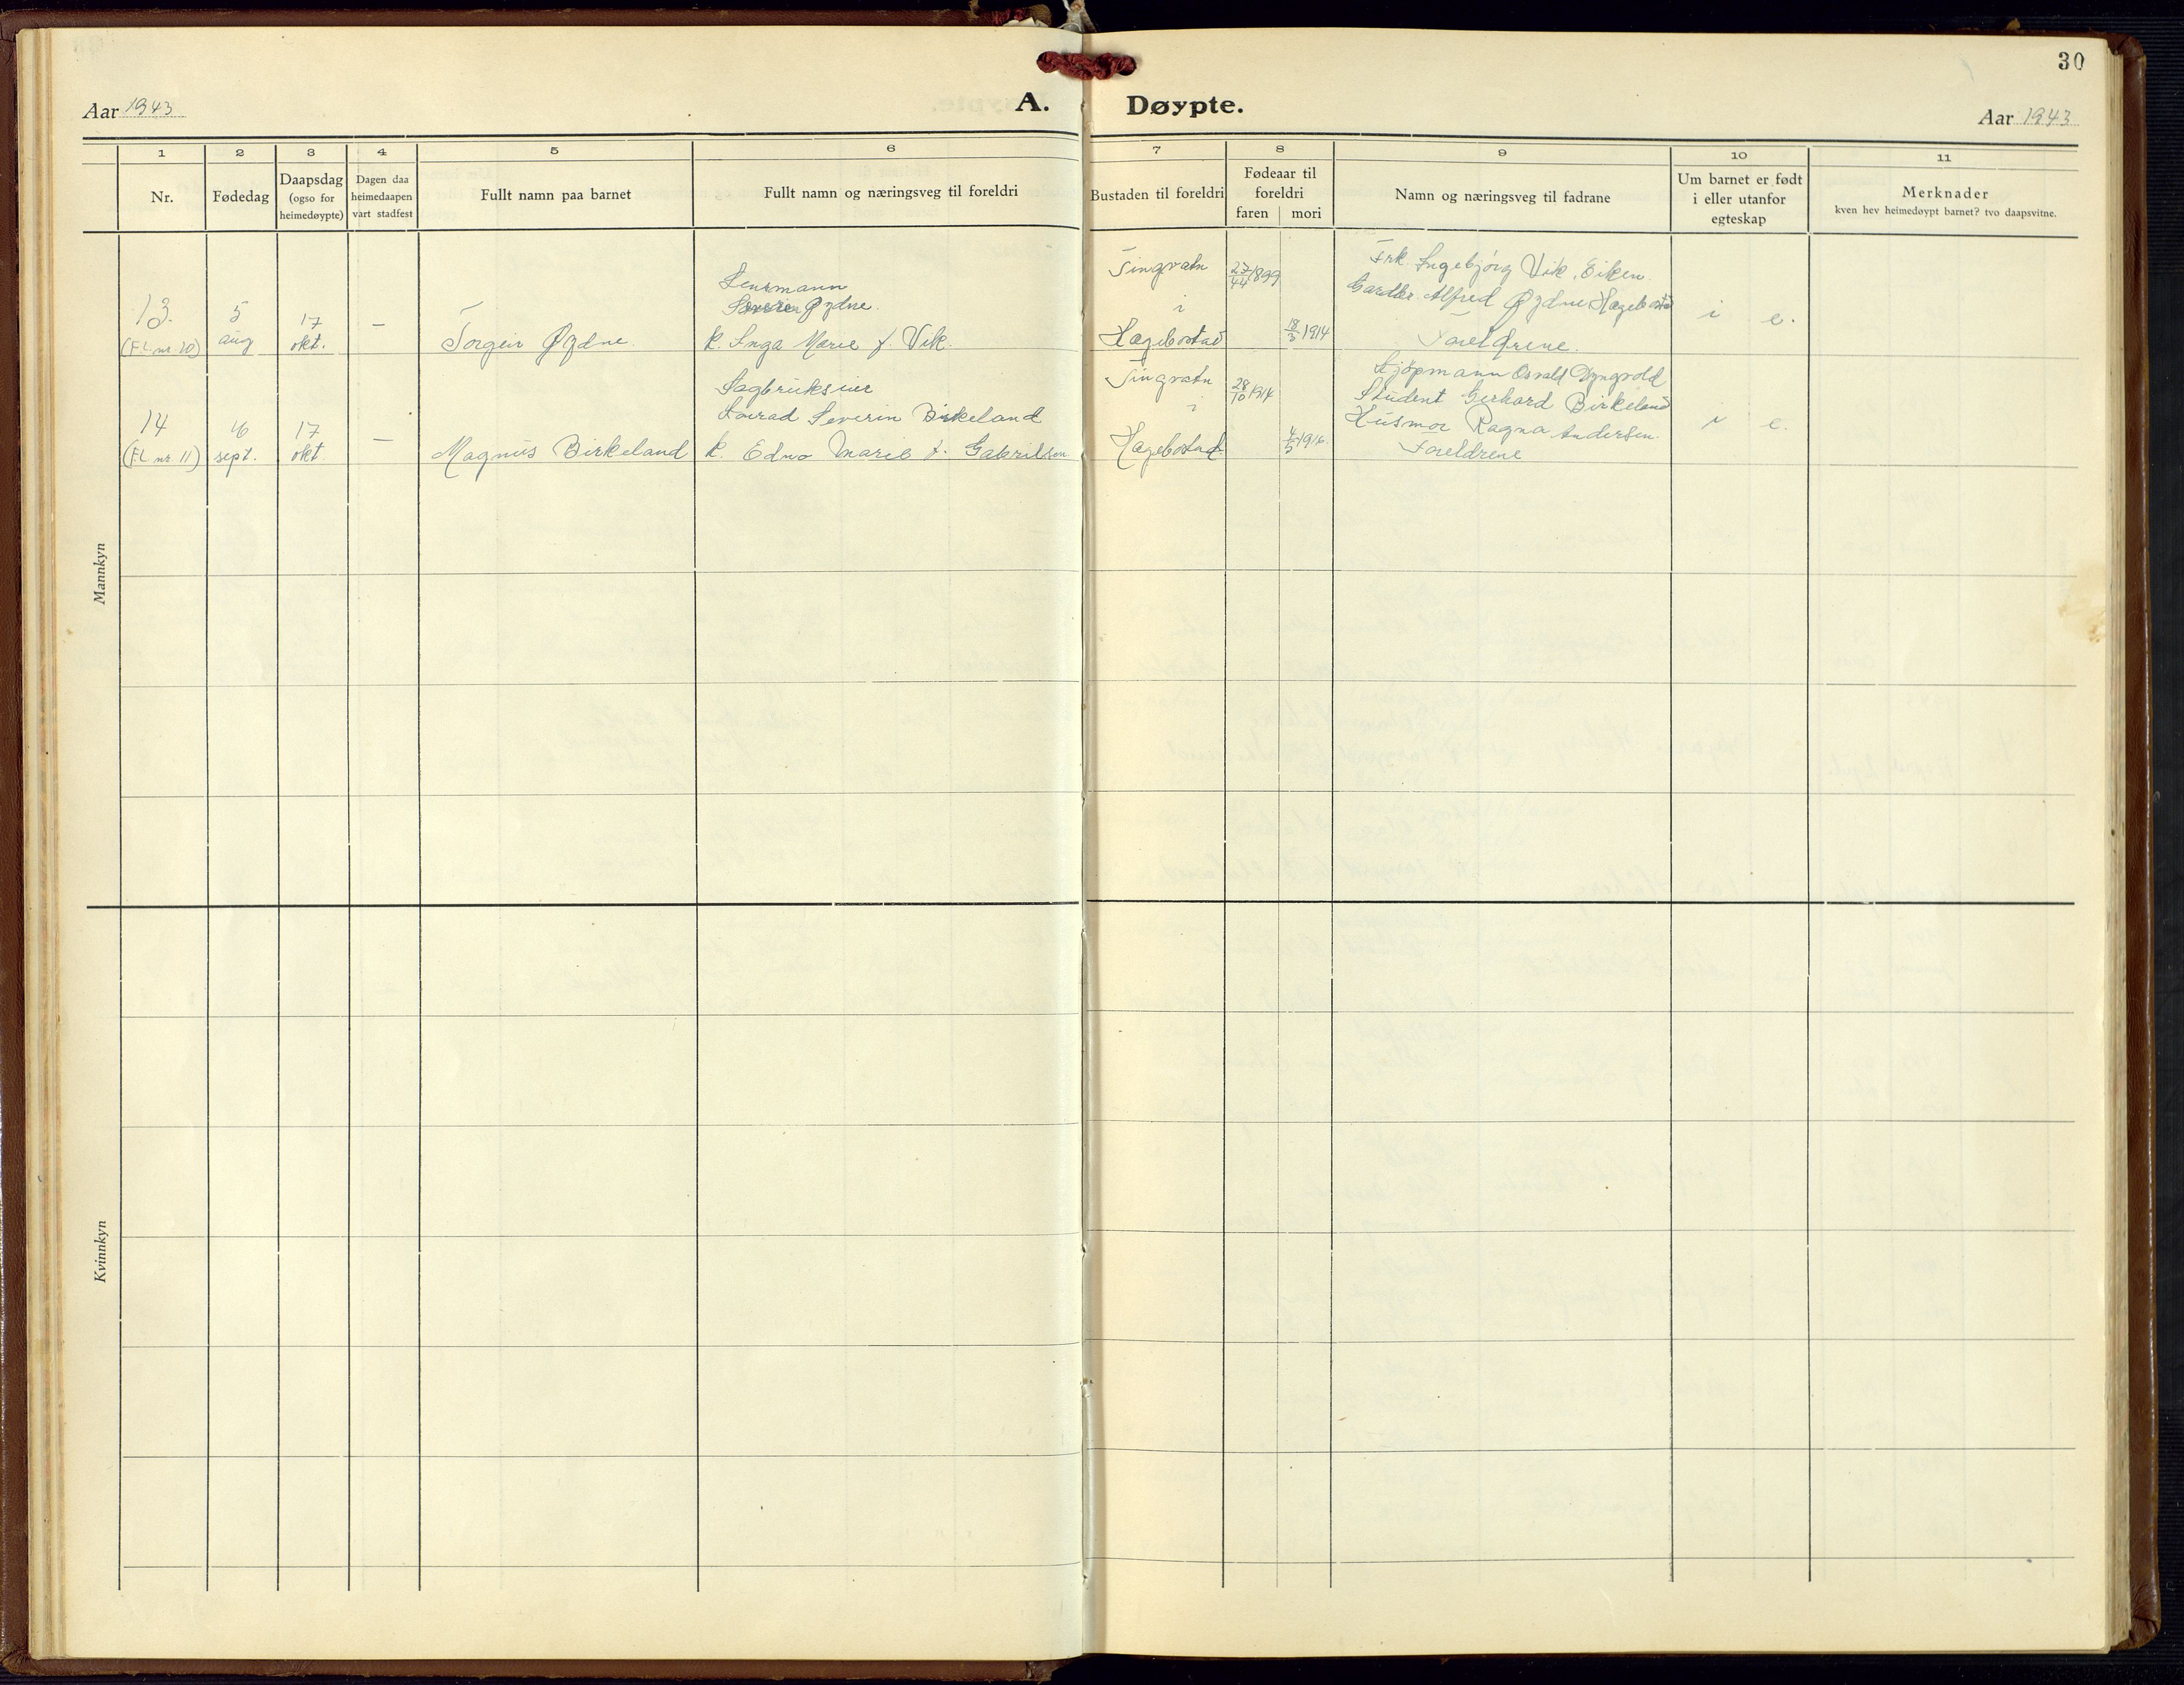 30
Aar 1943
A. Døypte.
Aar 1943
1 2 3 4 5 6 7 8 9 10 11
Nr.
Fødedag
Daapsdag
(ogso for
heimedøypte)
Dagen daa
heimedaapen
vart stadfest
Fullt namn paa barnet
Fullt namn og næringsveg til foreldri
Bustaden til foreldri
Fødeaar til
foreldri
faren mori
Namn og næringsveg til fadrane
Um barnet er født
i eller utanfor
egteskap
Merknader
kven hev heimedøypt barnet? tvo daapsvitne.
Mannkyn
13.
(F.L. nr. 20)
5
aug
17
okt.
—
Torgeir Øydne.
Lensmann
Øydne.
k. Inga Marie f. Vik.
Tingvatn
i
Hægebostad
1899
18/3 1914
Frk. Ingebjørg Vik, Eiken.
Gardbr. Alfred Øydne Hægebostad
Foreldrene.
i e.
14
(F.L. nr. 11)
sept.
17
okt.
—
Magnus Birkeland
Sagbrukseier
Konrad Severin Birkeland
k. Edna Marie f. Gabrilsen
Tingvatn
i
Hægebostad
28/10 1914
4/5 1916.
Kjøpmann Osvald Dyngvold
Student Gerhard Birkeland
Husmor Ragna Andersen.
Foreldrene
i e.
Kvinnkyn